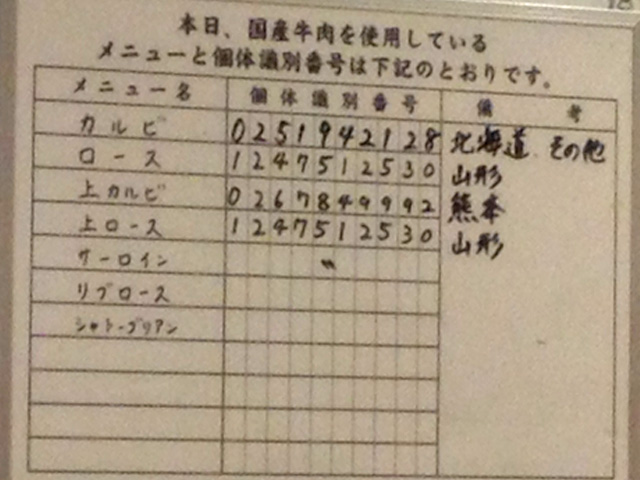 本日、国産牛肉を使用している
メニューと個体識別番号は下記のとおりです。
メニュー名 個体識別番号 備考
カルビ 0251942128 北海道 その他
ロース 1247512530 山形
上カルビ 0267849992 熊本
上ロース 1247512530 山形
サーロイン 〃
リブロース
シャトーブリアン